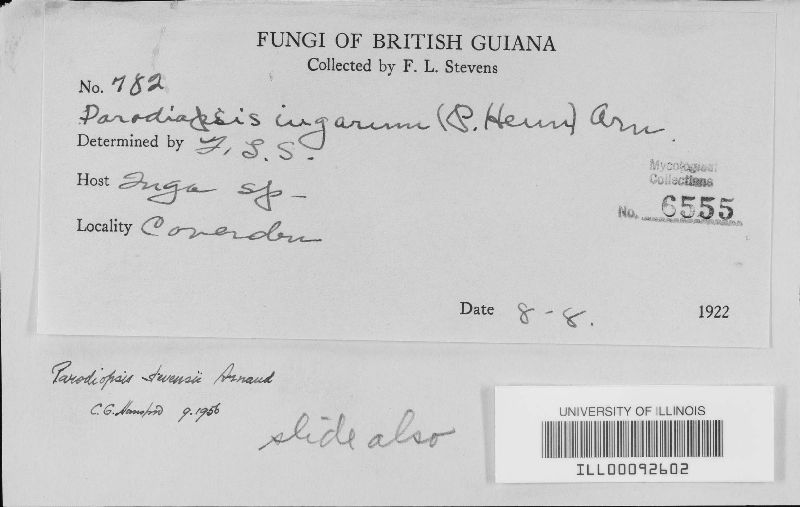 FUNGI OF BRITISH GUIANA
Collected by F. L. Stevens
No. 782
Parodiopsis ingarum (P. Henn) Arn.
Determined by F. L. S.
Host Inga sp.
Mycological
Collections
No. 6555
Locality Coverden
Date 8-8. 1922
Parodiopsis stevensii Arnaud
C.G. Hansford 9.1956
slide also
UNIVERSITY OF ILLINOIS
ILL00092602